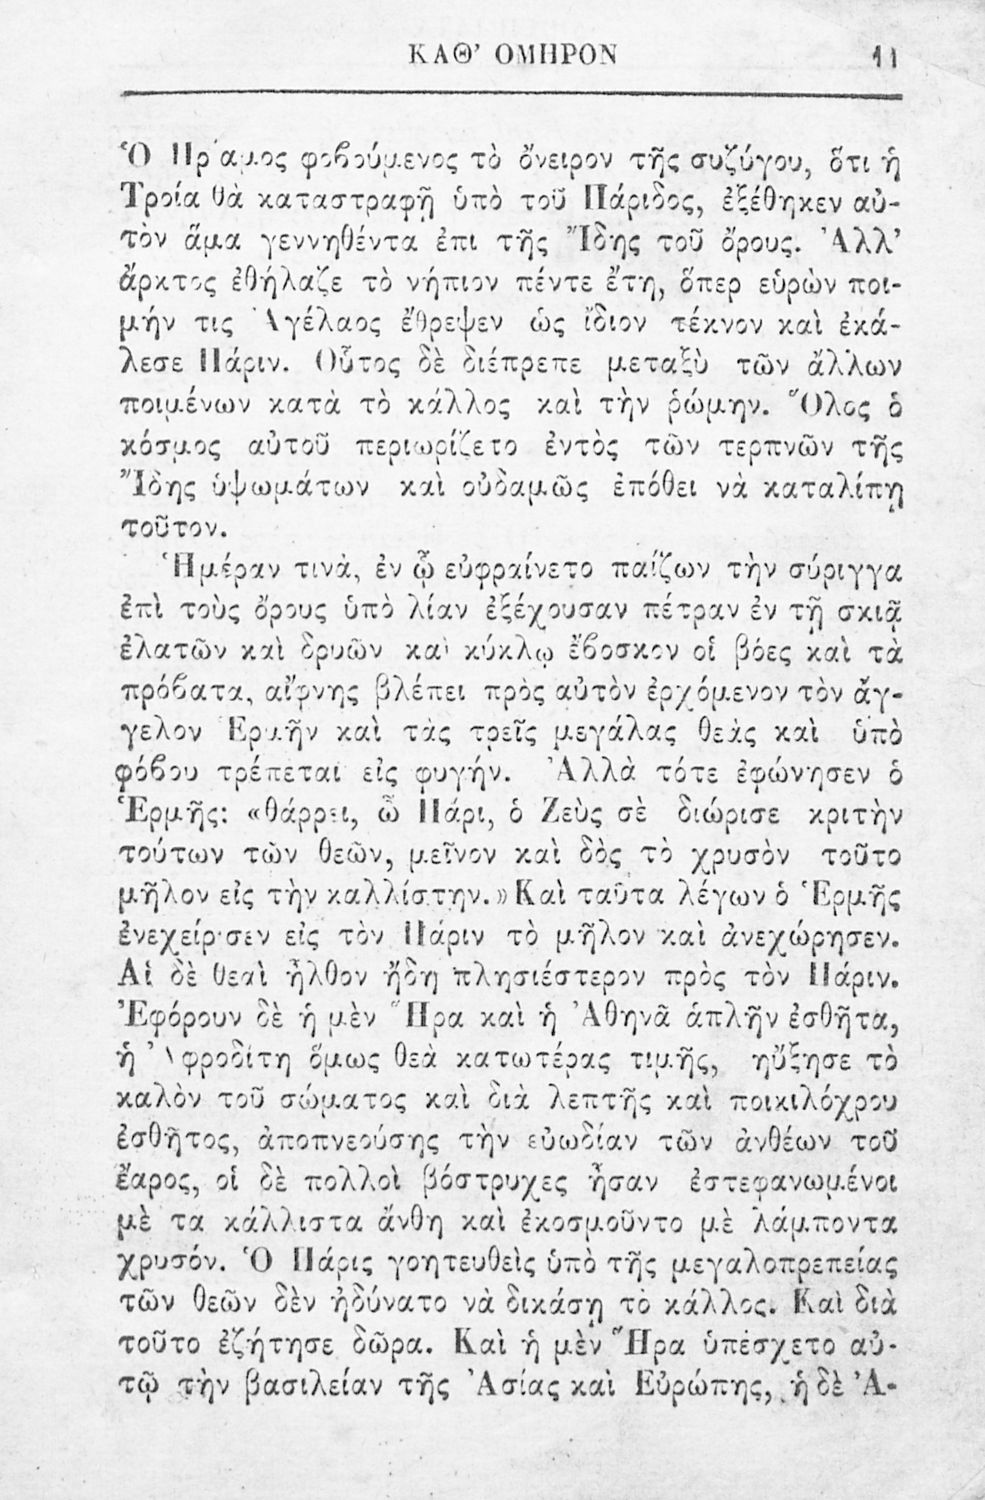 ΚΑΘ’ ΟΜΗΡΟΝ 11
Ὁ Πρίαμος φοβούμενος τὸ ὄνειρον τῆς συζύγου, ὅτι ἡ
Τροία θὰ καταστραφῇ ὑπὸ τοῦ Πάριδος, ἐξέθηκεν αὐ-
τὸν ἅμα γεννηθέντα ἐπι τῆς Ἴδης τοῦ ὄρους. Ἀλλ’
ἄρκτος ἐθήλαζε τὸ νήπιον πέντε ἔτη, ὅπερ εὑρὼν ποι-
μήν τις Ἀγέλαος ἔθρεψεν ὡς ἴδιον τέκνον καὶ ἐκά-
λεσε Πάριν. Οὗτος δὲ διέπρεπε μεταξὺ τῶν ἄλλων
ποιμένων κατὰ τὸ κάλλος καὶ τὴν ῥώμην. Ὅλος ὁ
κόσμος αὐτοῦ περιωρίζετο ἐντὸς τῶν τερπνῶν τῆς
Ἴδης ὑψωμάτων καὶ οὐδαμῶς ἐπόθει νὰ καταλίπῃ
τοῦτον.
Ἡμέραν τινὰ, ἐν ᾧ εὐφραίνετο παίζων τὴν σύριγγα
ἐπὶ τοὺς ὄρους ὑπὸ λίαν ἐξέχουσαν πέτραν ἐν τῇ σκιᾷ
ἐλατῶν καὶ δρυῶν καὶ κύκλῳ ἔβοσκον οἱ βόες καὶ τὰ
πρόβατα, αἴφνης βλέπει πρὸς αὐτὸν ἐρχόμενον τὸν ἄγ-
γελον Ἑρμῆν καὶ τὰς τρεῖς μεγάλας θεὰς καὶ ὑπὸ
φόβου τρέπεται εἰς φυγήν. Ἀλλὰ τότε ἐφώνησεν ὁ
Ἑρμῆς: «θάρρει, ὦ Πάρι, ὁ Ζεὺς σὲ διώρισε κριτὴν
τούτων τῶν θεῶν, μεῖνον καὶ δὸς τὸ χρυσὸν τοῦτο
μῆλον εἰς τὴν καλλίστην.» Καὶ ταῦτα λέγων ὁ Ἑρμῆς
ἐνεχείρισεν εἰς τὸν Πάριν τὸ μῆλον καὶ ἀνεχώρησεν.
Αἱ δὲ θεαὶ ἦλθον ἤδη πλησιέστερον πρὸς τὸν Πάριν.
Ἐφόρουν δὲ ἡ μὲν Ἥρα καὶ ἡ Ἀθηνᾶ ἁπλῆν ἐσθῆτα,
ἡ Ἀφροδίτη ὅμως θεὰ κατωτέρας τιμῆς, ηὔξησε τὸ
καλὸν τοῦ σώματος καὶ διὰ λεπτῆς καὶ ποικιλόχρου
ἐσθῆτος, ἀποπνεούσης τὴν εὐωδίαν τῶν ἀνθέων τοῦ
ἔαρος, οἱ δὲ πολλοὶ βόστρυχες ἦσαν ἐστεφανωμένοι
μὲ τα κάλλιστα ἄνθη καὶ ἐκοσμοῦντο μὲ λάμποντα
χρυσόν. Ὁ Πάρις γοητευθεὶς ὑπὸ τῆς μεγαλοπρεπείας
τῶν θεῶν δὲν ἠδύνατο νὰ δικάσῃ τὸ κάλλος. Καὶ διὰ
τοῦτο ἐζήτησε δῶρα. Καὶ ἡ μὲν Ἥρα ὑπέσχετο αὐ-
τῷ τὴν βασιλείαν τῆς Ἀσίας καὶ Εὐρώπης, ἡ δὲ Ἀ-